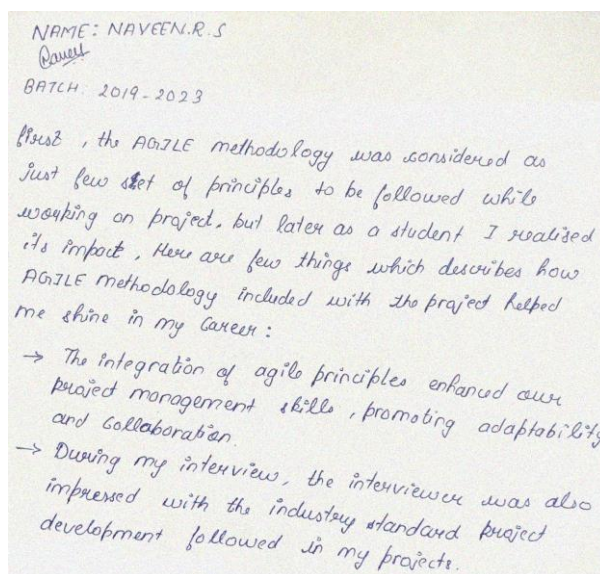 NAME: NAVEEN.R.S
BATCH: 2019-2023
first, the AGILE methodology was considered as
just few set of principles to be followed while
working on project, but later as a student I realised
its impact, Here are few things which describes how
AGILE methodology included with the project helped
me shine in my Career:
→ The integration of agile principles enhanced our
project management skills, promoting adaptability
and collaboration.
→ During my interview, the interviewer was also
impressed with the industry standard project
development followed in my projects.